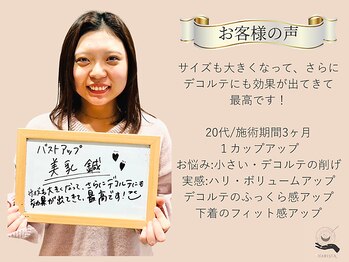 お客様の声
サイズも大きくなって、さらに
デコルテにも効果が出てきて
最高です！
20代/施術期間3ヶ月
１カップアップ
お悩み:小さい・デコルテの削げ
実感:ハリ・ボリュームアップ
デコルテのふっくら感アップ
下着のフィット感アップ
バストアップ
美乳鍼
サイズも大きくなって、さらにデコルテにも
効果が出てきて、最高です！